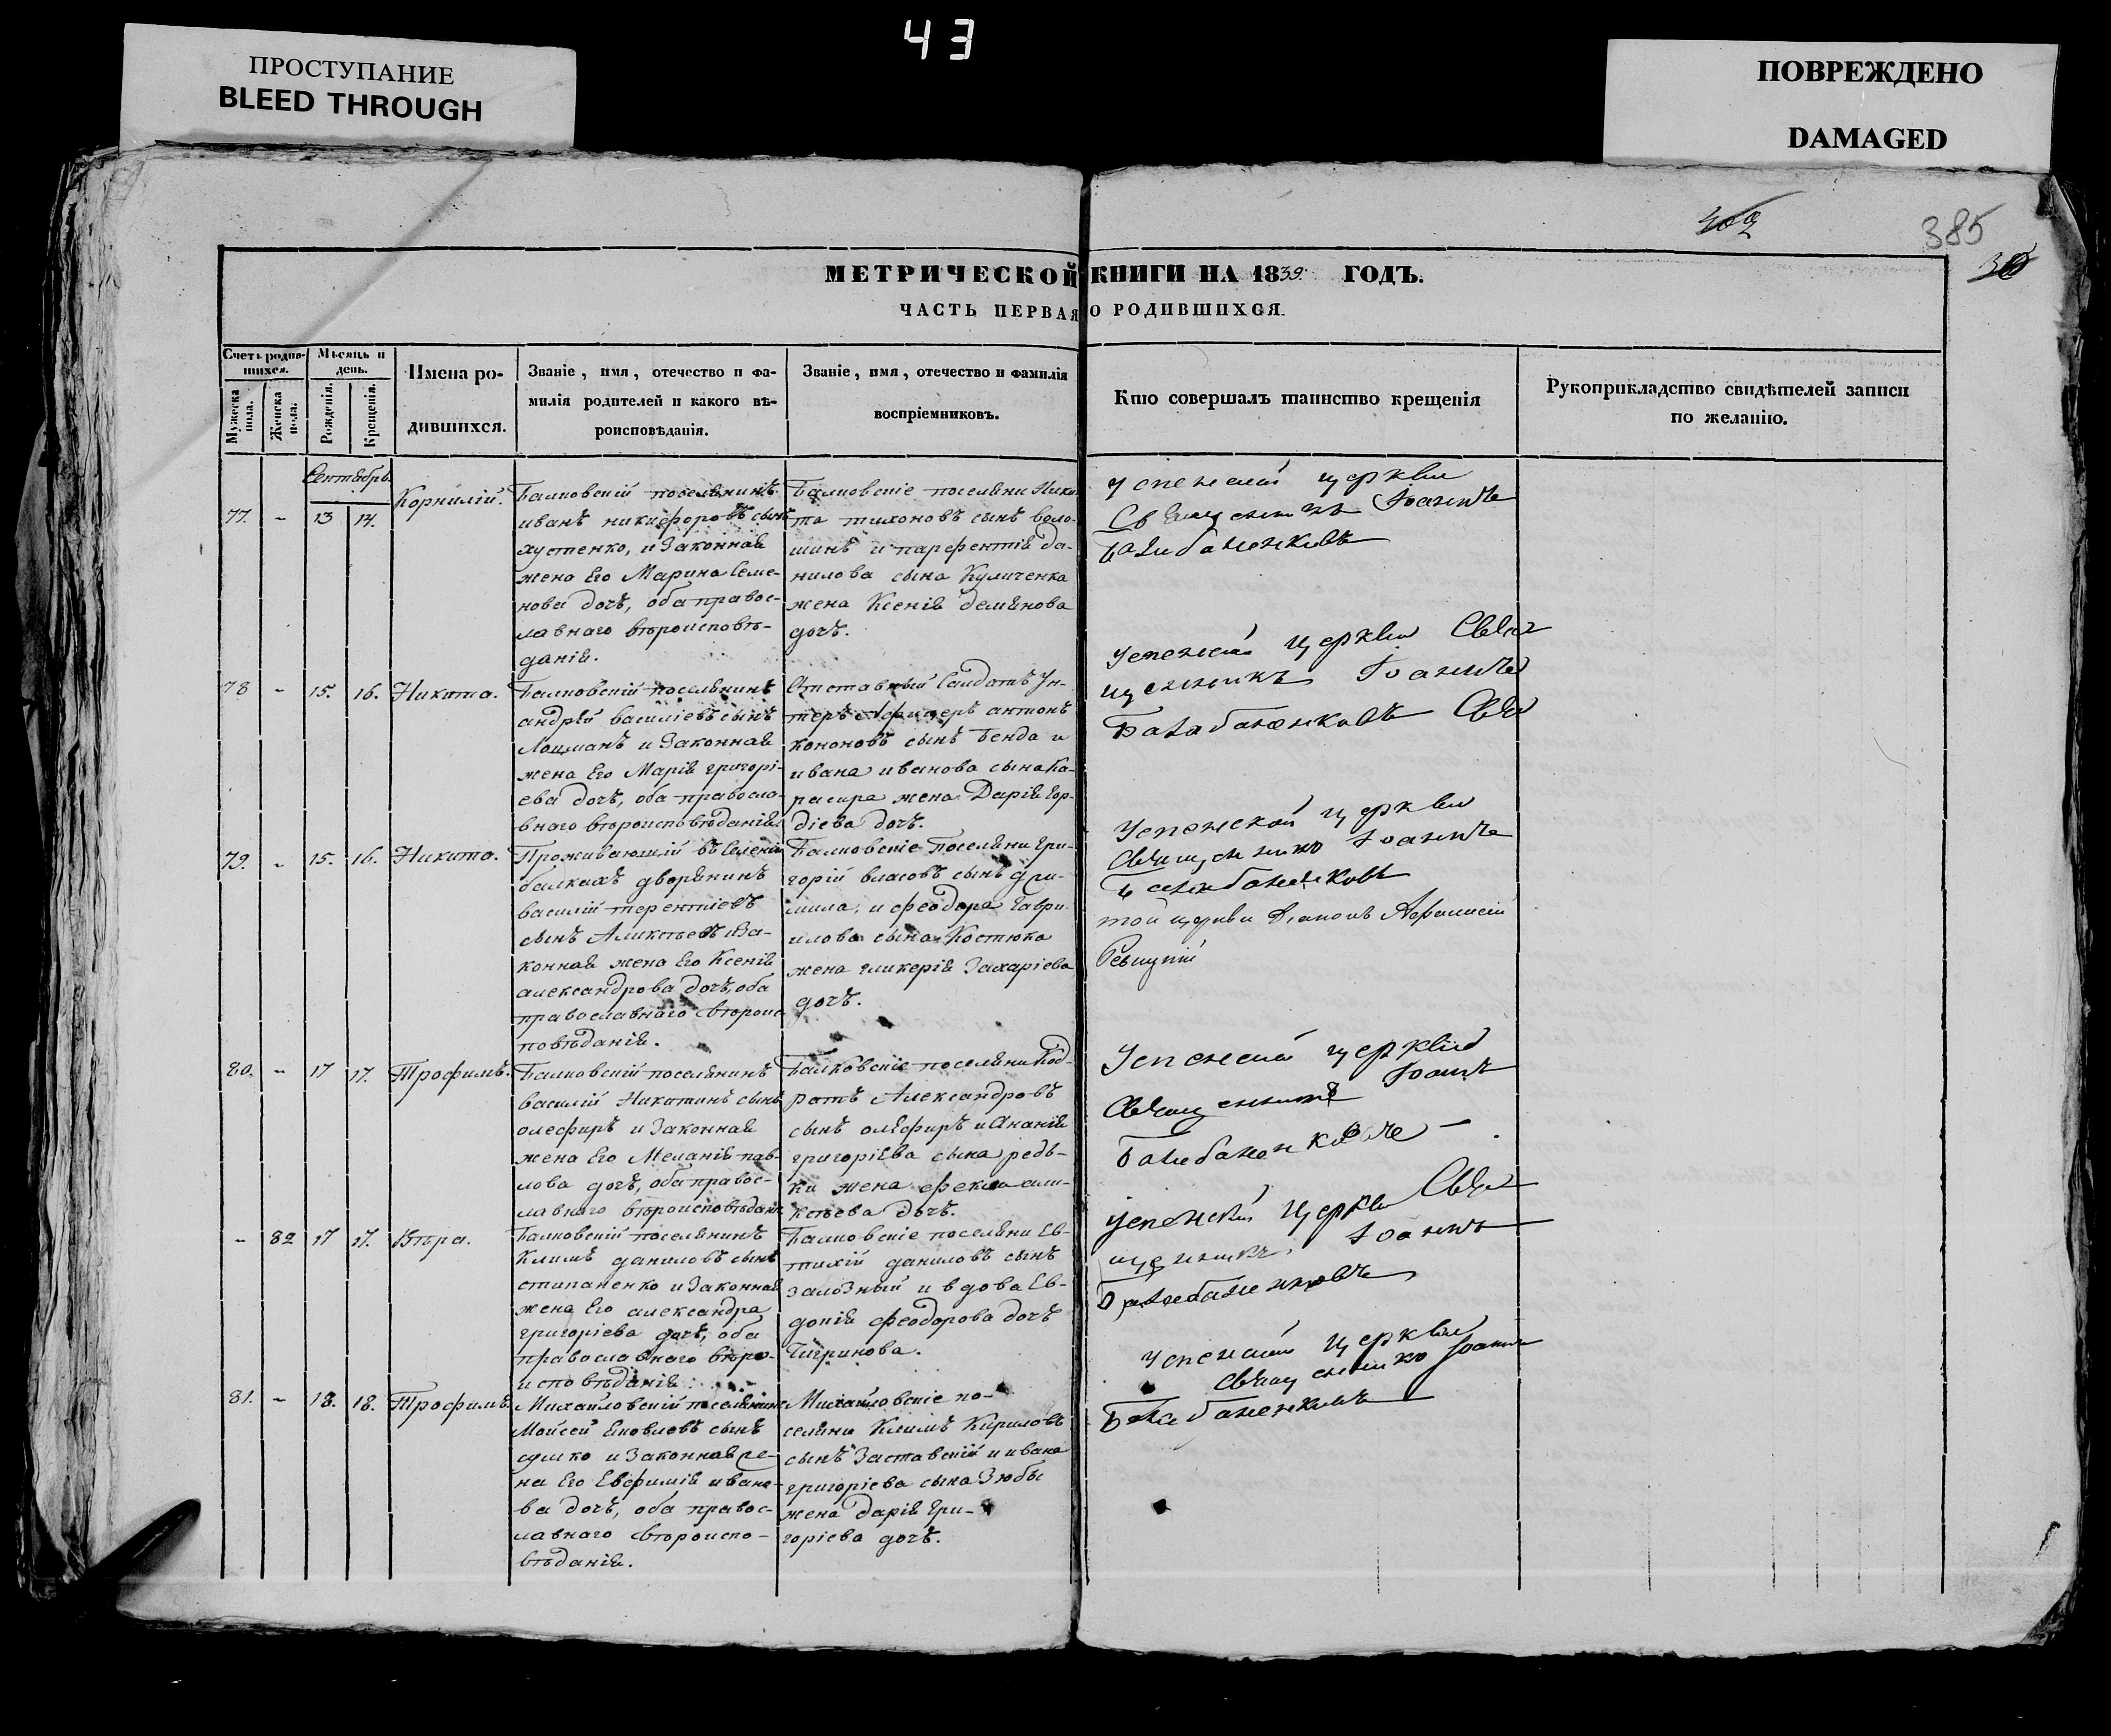 43
ПРОСТУПАНИЕ
BLEED THROUGH
ПОВРЕЖДЕНО
DAMAGED
385
МЕТРИЧЕСКОЙ КНИГИ НА 1839 ГОДЪ.
ЧАСТЬ ПЕРВАЯ О РОДИВШИХСЯ.
Счетъ родив-
шихся.
Мужеска
пола.
Женска
пола.
Мѣсяцъ и
день.
Рожденія.
Крещенія.
Имена ро-
дившихся.
Званіе, имя, отечество и фа-
милія родителей и какого вѣ-
роисповѣданія.
Званіе, имя, отечество и фамилія
воспріемниковъ.
Кто совершалъ таинство крещенія
Рукоприкладство свидѣтелей записи
по желанію.
Сентябрь
77. - 13 14. Корнилій.
Балковскій поселянинъ
иванъ никифоровъ сынъ
хустенко, и Законная
жена Его Марина Семе-
нова дочь, оба правос-
лавнаго вѣроисповѣ-
данія.
Балковскіе поселяни Ники-
та тихоновъ сынъ воло-
шинъ и парфентія да-
нилова сына Куличенка
жена Ксенія демянова
дочь.
Успенской церкви
Священникъ Іоаннъ
Балабаненковъ
78 - 15. 16. Никита.
Балковскій поселянинъ
андрей василіевъ сынъ
Лоцманъ и Законная
жена Его Марія григорі-
ева дочь, оба правосла-
внаго вѣроисповѣданія.
Отставный Салдатъ Ун-
теръ Афицеръ антонъ
кононовъ сынъ Бенда и
ивана иванова сына Ка-
расира жена Дарія Гор-
діева дочь.
Успенской церкви Свя
щенникъ Іоаннъ
Балабаненковъ
79. - 15. 16. Никита.
Проживающій въ Селеніи
балкахъ дворянинъ
василій терентіевъ
сынъ Аликсѣевъ и За-
конная жена Его Ксенія
александрова дочь, оба
православнаго вѣроис-
повѣданія.
Балковскіе Поселяни Гри-
горій власовъ сынъ
и феодора Гаври-
илова сына Костюка
жена гликерія Захаріева
дочь.
Успенской церкви
Священникъ Іоаннъ
Балабаненковъ
той церкви Діаконъ Афанасій
80. - 17 17. Трофимъ.
Балковскій поселянинъ
василій Никитинъ сынъ
олефиръ и Законная
жена Его Меланія пав-
лова дочь, оба правос-
лавнаго вѣроисповѣданія
Балковскіе поселяни Код-
ратъ Александровъ
сынъ олефиръ и Ананія
григоріева сына редь-
ки жена фекла али-
ксѣева дочь.
Успенской церкви
Священникъ Іоаннъ
Балабаненковъ
- 82 17 17. Вѣра.
Балковскій поселянинъ
Климъ даниловъ сынъ
стипаненко и Законная
жена Его александра
григоріева дочь, оба
православнаго вѣро-
исповѣданія.
Балковскіе поселяни Ев-
тихій даниловъ сынъ
залозный и вдова Ев-
докія феодорова дочь
Чигринова.
Успенской церкви Свя
щенникъ Іоаннъ
Балабаненковъ
81. - 18. 18. Трофимъ.
Михайловскій поселянинъ
Моисей яковлевъ сынъ
сулко и Законная же-
на Его Евфимія ивано-
ва дочь, оба правос-
лавнаго вѣроиспо-
вѣданія.
Михайловскіе по-
селяни Климъ Кириловъ
сынъ Заставскій и ивана
григоріева сына Зюбы
жена дарія Гри-
горіева дочь.
Успенской церкви
Священникъ Іоаннъ
Балабаненковъ